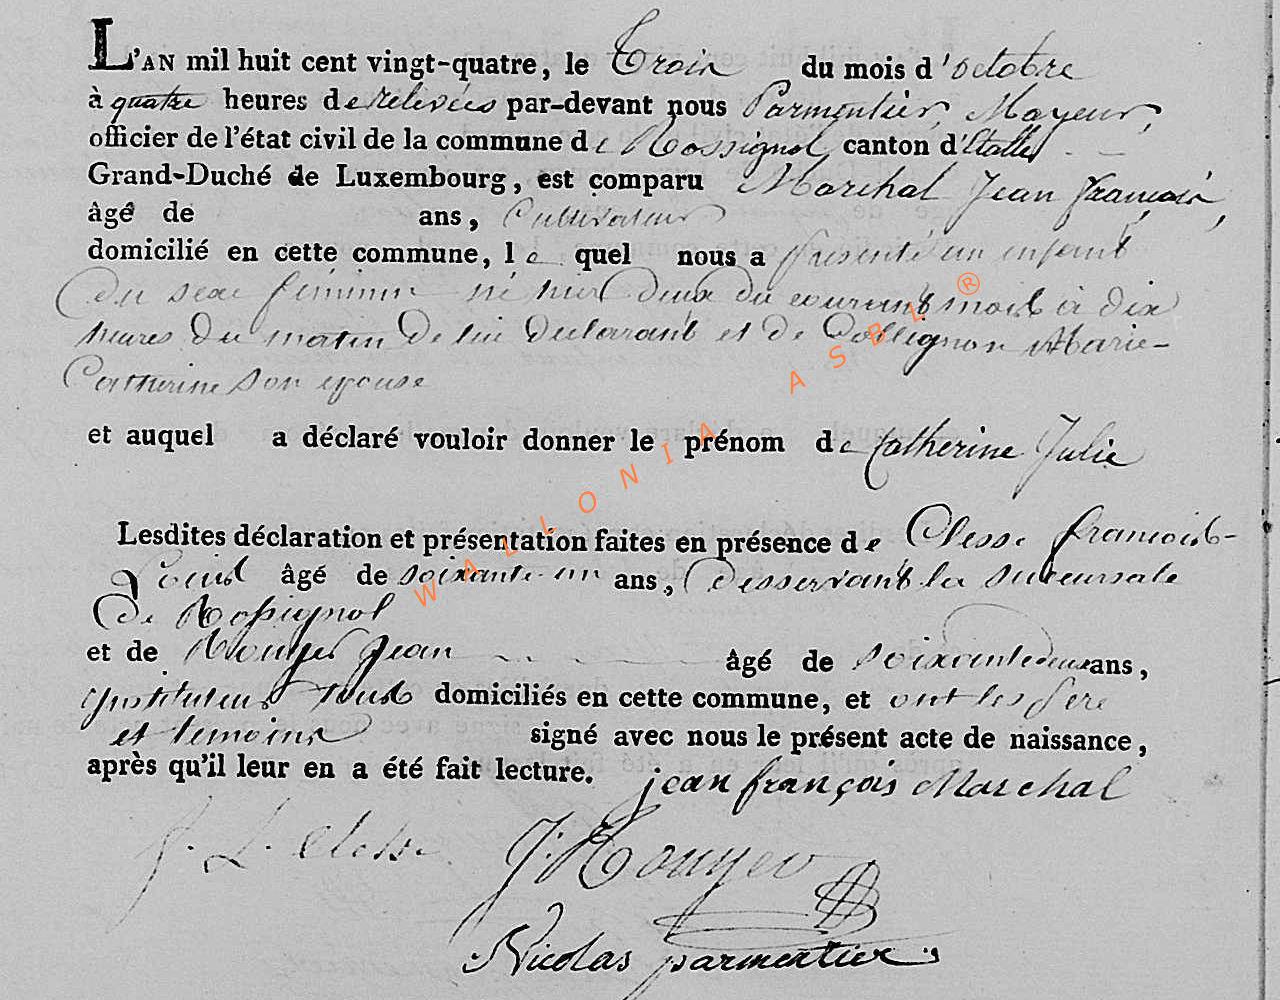 L'AN mil huit cent vingt-quatre, le Trois du mois d'octobre
à quatre heures de relevées par-devant nous Parmentier, Mayeur,
officier de l'état civil de la commune de Rossignol, canton d'Etalle
Grand-Duché de Luxembourg, est comparu Marchal Jean François,
âgé de ans, Cultivateur
domicilié en cette commune, le quel nous a présenté un enfant
du sexe féminin né hier deux du courant mois à dix
heures du matin de lui declarant et de Collignon Marie-
Catherine son epouse
et auquel a déclaré vouloir donner le prénom de Catherine Julie
Lesdites déclaration et présentation faites en présence de Clesse François-
Louis âgé de soixante-un ans, Desservant la succursale
de Rossignol
et de Rouyer Jean âgé de soixante deux ans,
instituteur tous domiciliés en cette commune, et ont les Père
et temoins signé avec nous le présent acte de naissance,
après qu'il leur en a été fait lecture.
jean françois Marchal
f. L. Clesse
J. Rouyer
Nicolas parmentier
WALLONIA ASBL ®